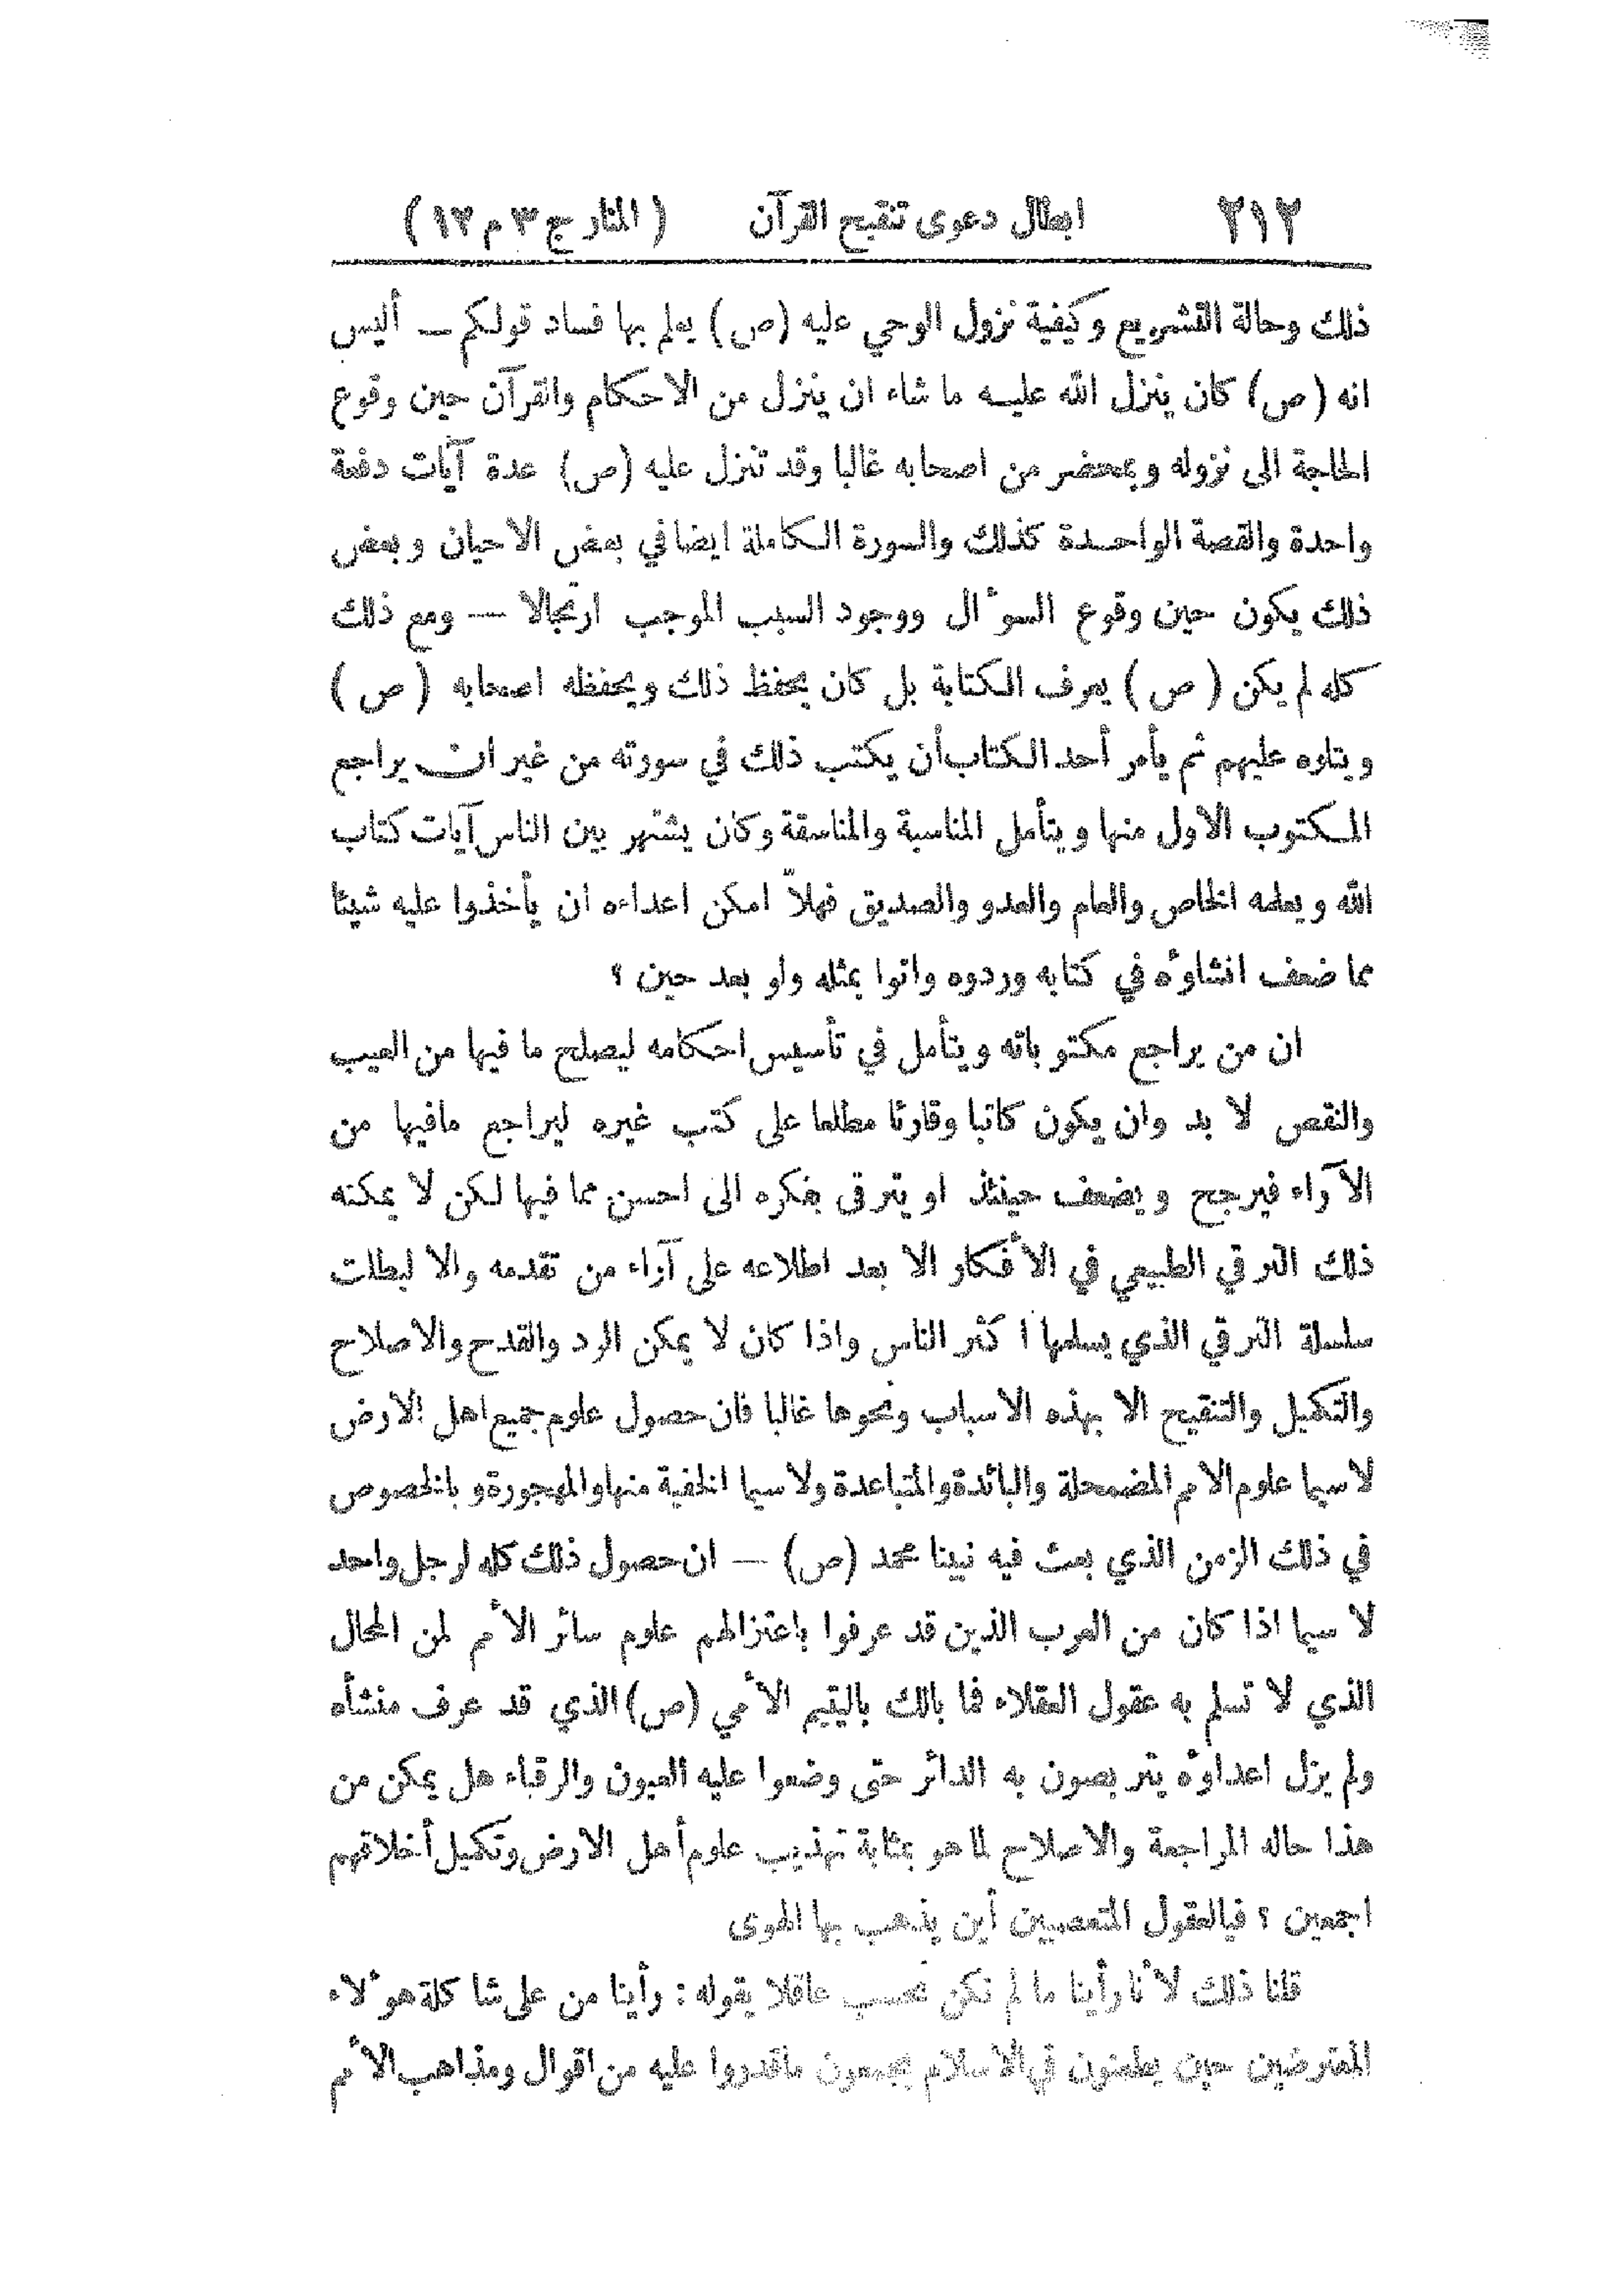 ٢١٢ ابطال دعوى تنقيح القرآن ( المنار ج ٣ م ١٣ )
ذلك وحالة التشريع وكيفية نزول الوحي عليه (ص) يعلم بها فساد قولكم — أليس
انه (ص) كان ينزل الله عليه ما شاء ان ينزل من الاحكام والقرآن حين وقوع
الحاجة الى نزوله وبمحضر من اصحابه غالبا وقد تنزل عليه (ص) عدة آيات دفعة
واحدة والقصة الواحدة كذلك والسورة الكاملة ايضا في بعض الاحيان وبعض
ذلك يكون حين وقوع السؤال ووجود السبب الموجب ارتجالا — ومع ذلك
كله لم يكن ( ص ) يعرف الكتابة بل كان يحفظ ذلك ويحفظه اصحابه ( ص )
ويتلوه عليهم ثم يأمر أحد الكتاب أن يكتب ذلك في سورته من غير ان يراجع
المكتوب الاول منها ويتأمل المناسبة والمناسقة وكان يشتهر بين الناس آيات كتاب
الله ويعلمه الخاص والعام والعدو والصديق فهلاّ امكن اعداءه ان يأخذوا عليه شيئا
مما ضعف انشاؤه في كتابه وردوه واتوا بمثله ولو بعد حين ؟
ان من يراجع مكتوباته ويتأمل في تأسيس احكامه ليصلح ما فيها من العيب
والنقص لا بد وان يكون كاتبا وقارئا مطلعا على كتب غيره ليراجع مافيها من
الآراء فيرجح ويضعف حينئذ او يترقى بفكره الى احسن مما فيها لكن لا يمكنه
ذلك الترقي الطبيعي في الأفكار الا بعد اطلاعه على آراء من تقدمه والا لبطلت
سلسلة الترقي الذي يسلمها اكثر الناس واذا كان لا يمكن الرد والقدح والاصلاح
والتكميل والتنقيح الا بهذه الاسباب ونحوها غالبا فان حصول علوم جميع اهل الارض
لا سيما علوم الامم المضمحلة والبائدة والمتباعدة ولا سيما الخفية منها والمهجورة وبالخصوص
في ذلك الزمن الذي بعث فيه نبينا محمد (ص) — ان حصول ذلك كله لرجل واحد
لا سيما اذا كان من العرب الذين قد عرفوا باعتزالهم علوم سائر الأمم لمن المحال
الذي لا تسلم به عقول العقلاء فما بالك باليتيم الأمي (ص) الذي قد عرف منشأه
ولم يزل اعداؤه يتربصون به الدائر حتى وضعوا عليه العيون والرقباء هل يمكن من
هذا حاله المراجعة والاصلاح لما هو بمثابة تهذيب علوم أهل الارض وتكميل أخلاقهم
اجمعين ؟ فيالعقول المتعصبين أين يذهب بها الهوى
قلنا ذلك لأنا رأينا ما لم نكن نحسب عاقلا يقوله : رأينا من على شاكلة هؤلاء
المعترضين حين يطعنون في الاسلام يجمعون ماقدروا عليه من اقوال ومذاهب الأمم